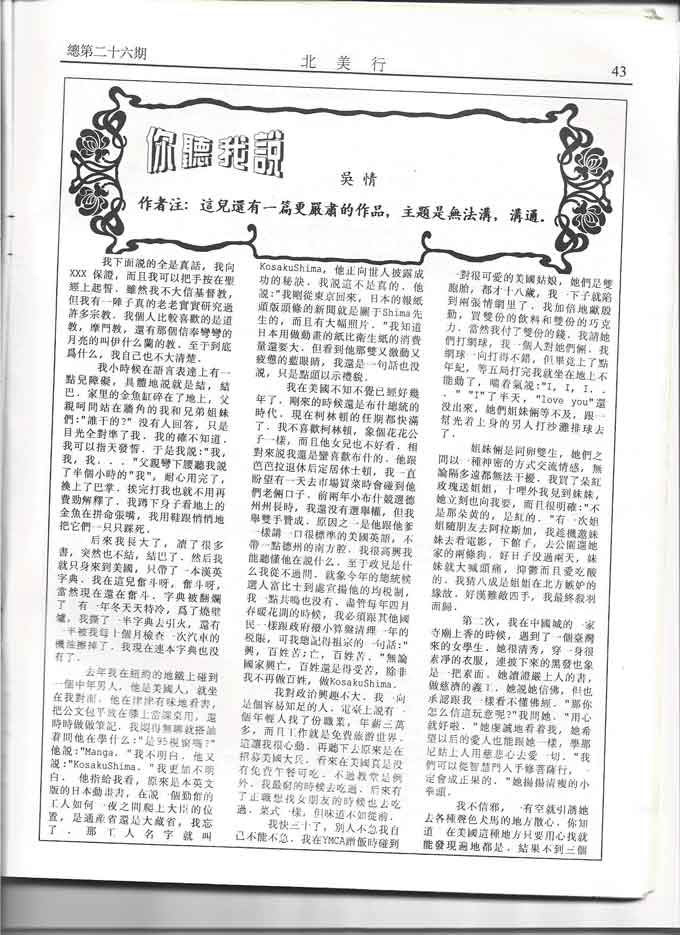 總第二十六期
北美行
43
你聽我說
吳情
作者注：這兒還有一篇更嚴肅的作品，主題是無法溝，溝通．
我下面說的全是真話，我向
XXX 保證，而且我可以把手按在聖
經上起誓．雖然我不大信基督教，
但我有一陣子真的老老實實研究過
許多宗教．我個人比較喜歡的是道
教，摩門教，還有那個信奉彎彎的
月亮的叫伊什么蘭的教．至于到底
爲什么，我自己也不大清楚．
我小時候在語言表達上有一
點兒障礙，具體地說就是結，結
巴．家里的金魚缸碎在了地上，父
親呵問站在牆角的我和兄弟姐妹
們："誰干的?" 没有人回答，只是
目光全對準了我．我的確不知道．
我可以指天發誓．于是我說:"我，
我，我．．．"父親彎下腰聽我說
了半個小時的"我"，耐心用完了，
換上了巴掌．挨完打我也就不用再
費勁解釋了．我蹲下身子看地上的
金魚在拼命張嘴，我用鞋跟悄悄地
把它們一只只踩死．
后來我長大了，讀了很多
書，突然也不結，結巴了．然后我
就只身來到美國，只帶了一本漢英
字典．我在這兒奮斗呀，奮斗呀，
當然現在還在奮斗．字典被翻爛
了．有一年冬天天特冷，爲了燒壁
爐，我撕了一半字典去引火，還有
一半被我每十個月檢查一次汽車的
機油擦掉了．我現在連本字典也没
有了．
去年我在紐約的地鐵上碰到
一個中年男人，他是美國人，就坐
在我對面．他在津津有味地看書，
把公文包平放在膝上當課桌用，還
時時做做筆記．我悶得無聊就搭訕
着問他在學什么:"是95視窗嗎?"
他說:"Manga．"我不明白．他又
說:"KosakuShima．"我更加不明
白．他指給我看，原來是本英文
版的日本動畫書，在說一個勤奮的
工人如何一夜之間爬上大臣的位
置，是通產省還是大藏省，我忘
了．那工人名字就叫
KosakuShima，他正向世人披露成
功的秘訣．我說這不是真的．他
說:"我剛從東京回來，日本的報紙
頭版頭條的新聞就是關于Shima先
生的，而且有大幅照片．"我知道
日本用做動畫的紙比衛生紙的消費
量還要大．但看到他那雙又激動又
疲憊的藍眼睛，我還是一句話也没
說，只是點頭以示禮貌．
我在美國不知不覺已經好幾
年了．剛來的時候還是布什總統的
時代．現在柯林頓的任期都快滿
了．我不喜歡柯林頓，象個花花公
子一樣，而且他女兒也不好看．相
對來說我還是蠻喜歡布什的．他跟
芭芭拉退休后定居休士頓，我一直
盼望有一天去市場買菜時會碰到他
們老倆口子．前兩年小布什競選德
州州長時，我還没有選舉權，但我
舉雙手贊成．原因之一是他跟他爹
一樣講一口很標準的美國英語，不
帶一點德州的南方腔．我很高興我
能聽懂他在說什么．至于政見是什
么我從不過問．就象今年的總統候
選人富比士到處宣揚他的均税制，
我一點共鳴也没有．盡管每年四月
春暖花開的時候，我必須跟其他國
民一樣跟政府撥小算盤清理一年的
税賬，可我總記得祖宗的一句話："
興，百姓苦;亡，百姓苦．"無論
國家興亡，百姓還是得受苦，除非
我不再做百姓，做KosakuShima．
我對政治興趣不大．我一向
是個容易知足的人．電臺上說有一
個年輕人找了份職業，年薪三萬
多，而且工作就是免費旅游世界．
這讓我很心動．再聽下去原來是在
招募美國大兵．看來在美國真是没
有免費午餐可吃．不過教堂是例
外．我最窮的時候去吃過．后來有
了正職想找女朋友的時候也去吃
過．菜式一樣，但味道不如從前．
我快三十了，別人不急我自
己不能不急．我在YMCA蹭飯時碰到
一對很可愛的美國姑娘，她們是雙
胞胎，都才十八歲，我一下就陷
到兩張情網里了．我加倍地獻殷
勤，買雙份的飲料和雙份的巧克
力．當然我付了雙份的錢．我請她
們打網球，我一個人對她們倆．我
網球一向打得不錯，但畢竟上了點
年紀，等五局打完我就坐在地上不
能動了，喘着氣說:"I，I，I．．
．" "I"了半天，"love you"還
没出來，她們姐妹倆等不及，跟一
幫光着上身的男人打沙灘排球去
了．
姐妹倆是同卵雙生，她們之
間以一種神密的方式交流情感，無
論隔多遠都無法干擾．我買了朵紅
玫瑰送姐姐，十哩外我見到妹妹，
她立刻也向我要，而且很明確:"不
是那朵黄的，是紅的．"有一次姐
姐隨朋友去阿拉斯加，我趁機邀妹
妹去看電影，下館子，去公園遛她
家的兩條狗．好日子没過兩天，妹
妹就大喊頭痛，抑鬱而且愛吃酸
的．我猜八成是姐姐在北方嫉妒的
緣故．好漢難敵四手，我最終敍羽
而歸．
第二次，我在中國城的一家
寺廟上香的時候，遇到了一個臺灣
來的女學生．她很清秀，穿一身很
素凈的衣服，連披下來的黑發也象
是一把素面．她讀證嚴上人的書，
做慈濟的義工．她說她信佛，但也
承認跟我一樣看不懂佛經．"那你
怎么信這玩意呢?"我問她．"用心
就好啦．"她虔誠地看着我，她希
望以后的愛人也能跟她一樣，學那
尼姑上人用慈悲心去愛一切．"我
們可以從智慧門入手修菩薩行，一
定會成正果的．"她揚揚清瘦的小
拳頭．
我不信邪，一有空就引誘她
去各種聲色犬馬的地方散心．你知
道，在美國這種地方只要用心我就
能發現遍地都是．結果不到三個